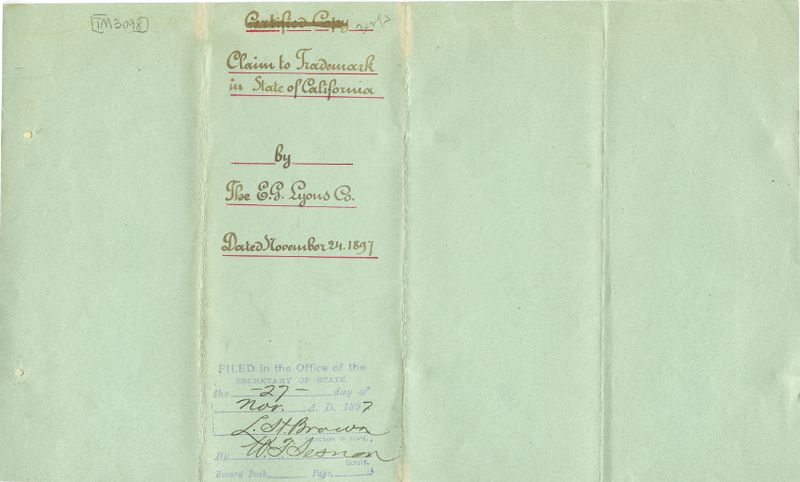 TM3098
Certified Copy
Claim to Trademark
in State of California
by
The E.G. Lyons Co.
Dated November 24. 1897
FILED in the Office of the
SECRETARY OF STATE
the -27- day of
Nov. A. D. 1897
L. H. Brown
Secretary of State,
By W. T. Sesnon
Deputy.
Record Book Page